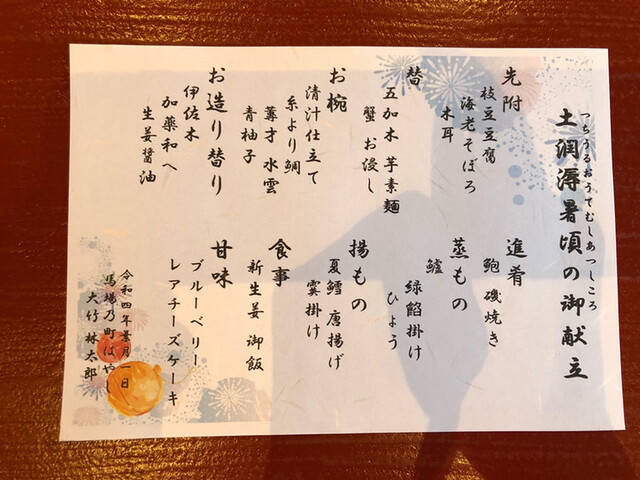 つちうるおうてむしあつしころ
土潤溽暑頃の御献立
先附
枝豆豆腐
海老そぼろ
木耳
替
五加木 芋素麺
蟹 お浸し
お椀
清汁仕立て
糸より鯛
蓴才 水雲
青柚子
お造り替り
伊佐木
加薬和へ
生姜醤油
進肴
鮑 磯焼き
蒸もの
鱸
緑餡掛け
ひょう
揚もの
夏鱈 唐揚げ
霙掛け
食事
新生姜 御飯
甘味
ブルーベリー
レアチーズケーキ
令和四年葉月一日
馬場乃町はやし
大竹 林太郎